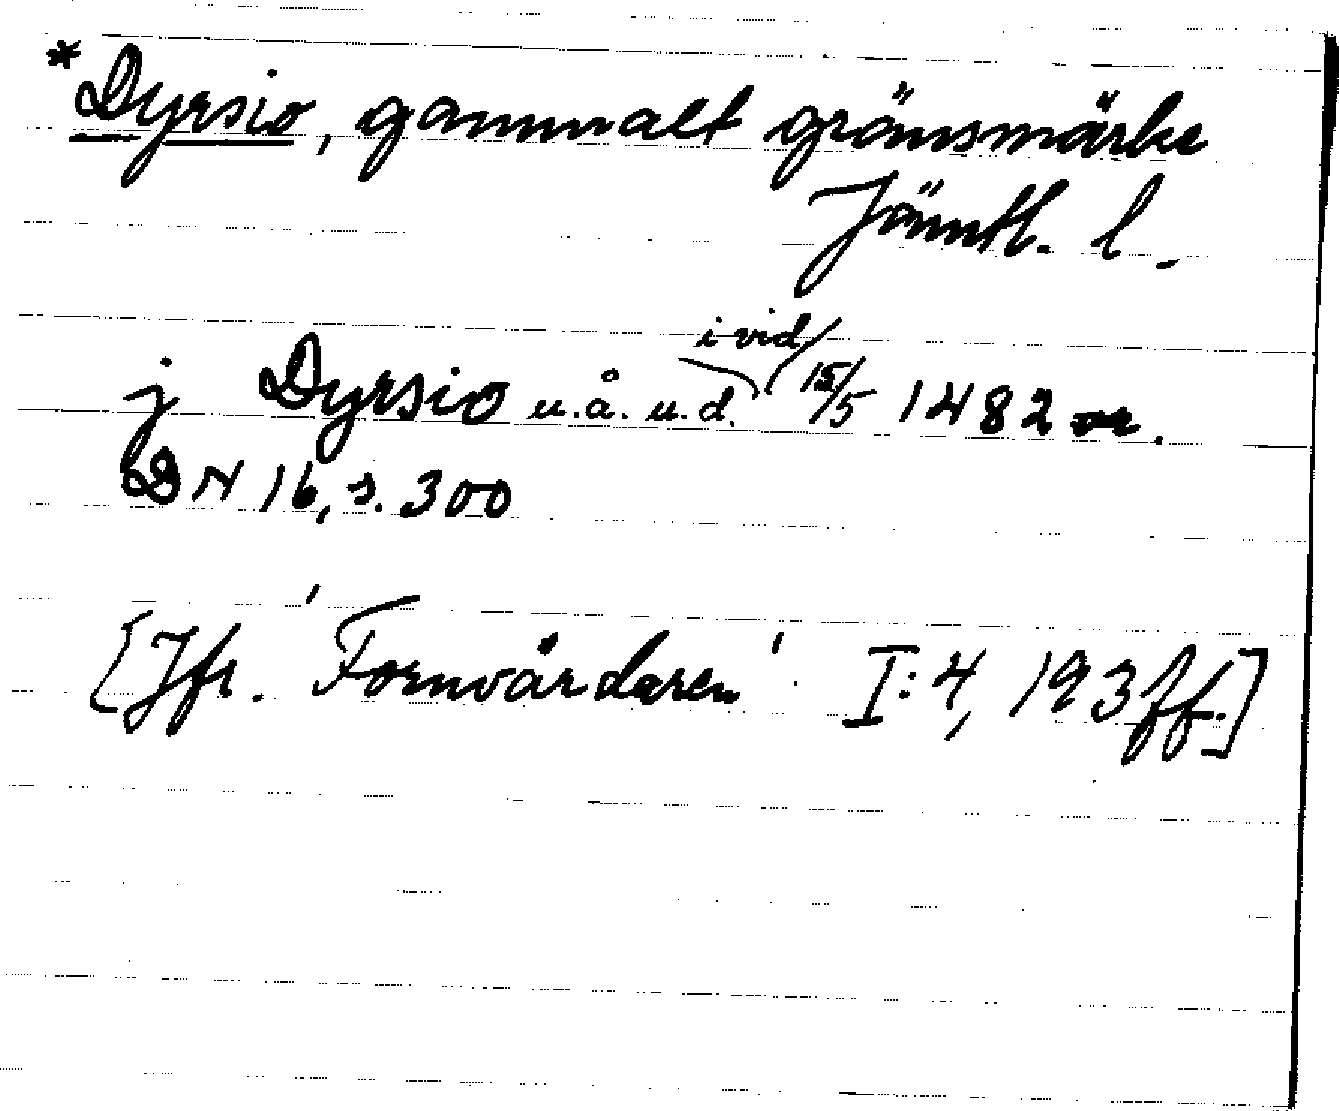 *Dyrsio, gammalt gränsmärke
Jämtl. l.
i vid
j Dyrsio u.å. u.d. 15/5 1482 or.
DN 16, s. 300
[Jfr. 'Fornvårdaren' I:4, 193ff.]